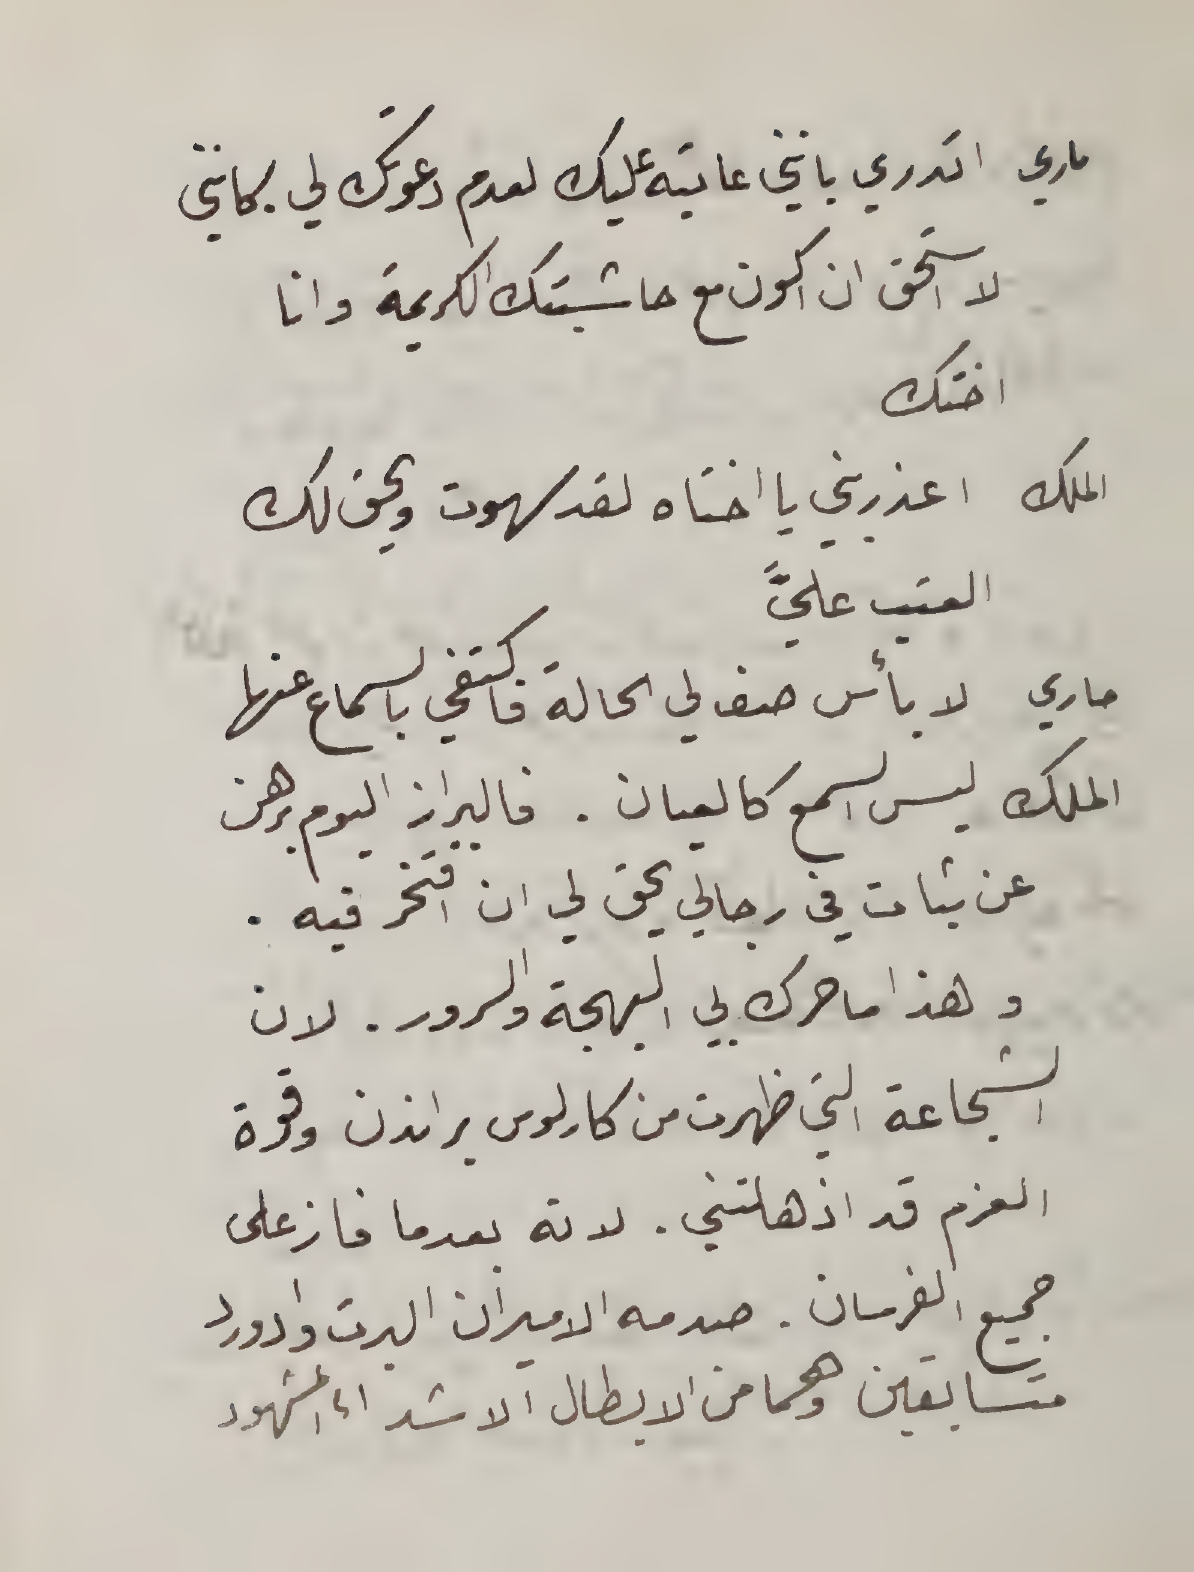 ماري اتدري بانني عاتبة عليك لعدم دعوتك لي كانني
لا استحق ان اكون مع حاشيتك الكريمة وانا
اختك
الملك اعذريني يا اختاه لقد سهوت ويحق لك
العتب عليَّ
ماري لا بأس صف لي الحالة فاكتفي بالسماع عنها
الملك ليس السمع كالعيان . فالبراز اليوم برهن
عن ثبات في رجالي يحق لي ان افتخر فيه .
وهذا ما حرك بي البهجة والسرور . لان
الشجاعة التي ظهرت من كارلوس براندن وقوة
العزم قد اذهلتني . لانه بعدما فاز على
جميع الفرسان . صدمه الاميران البرت وادورد
متسابقين وهما من الابطال الاشداء المشهود